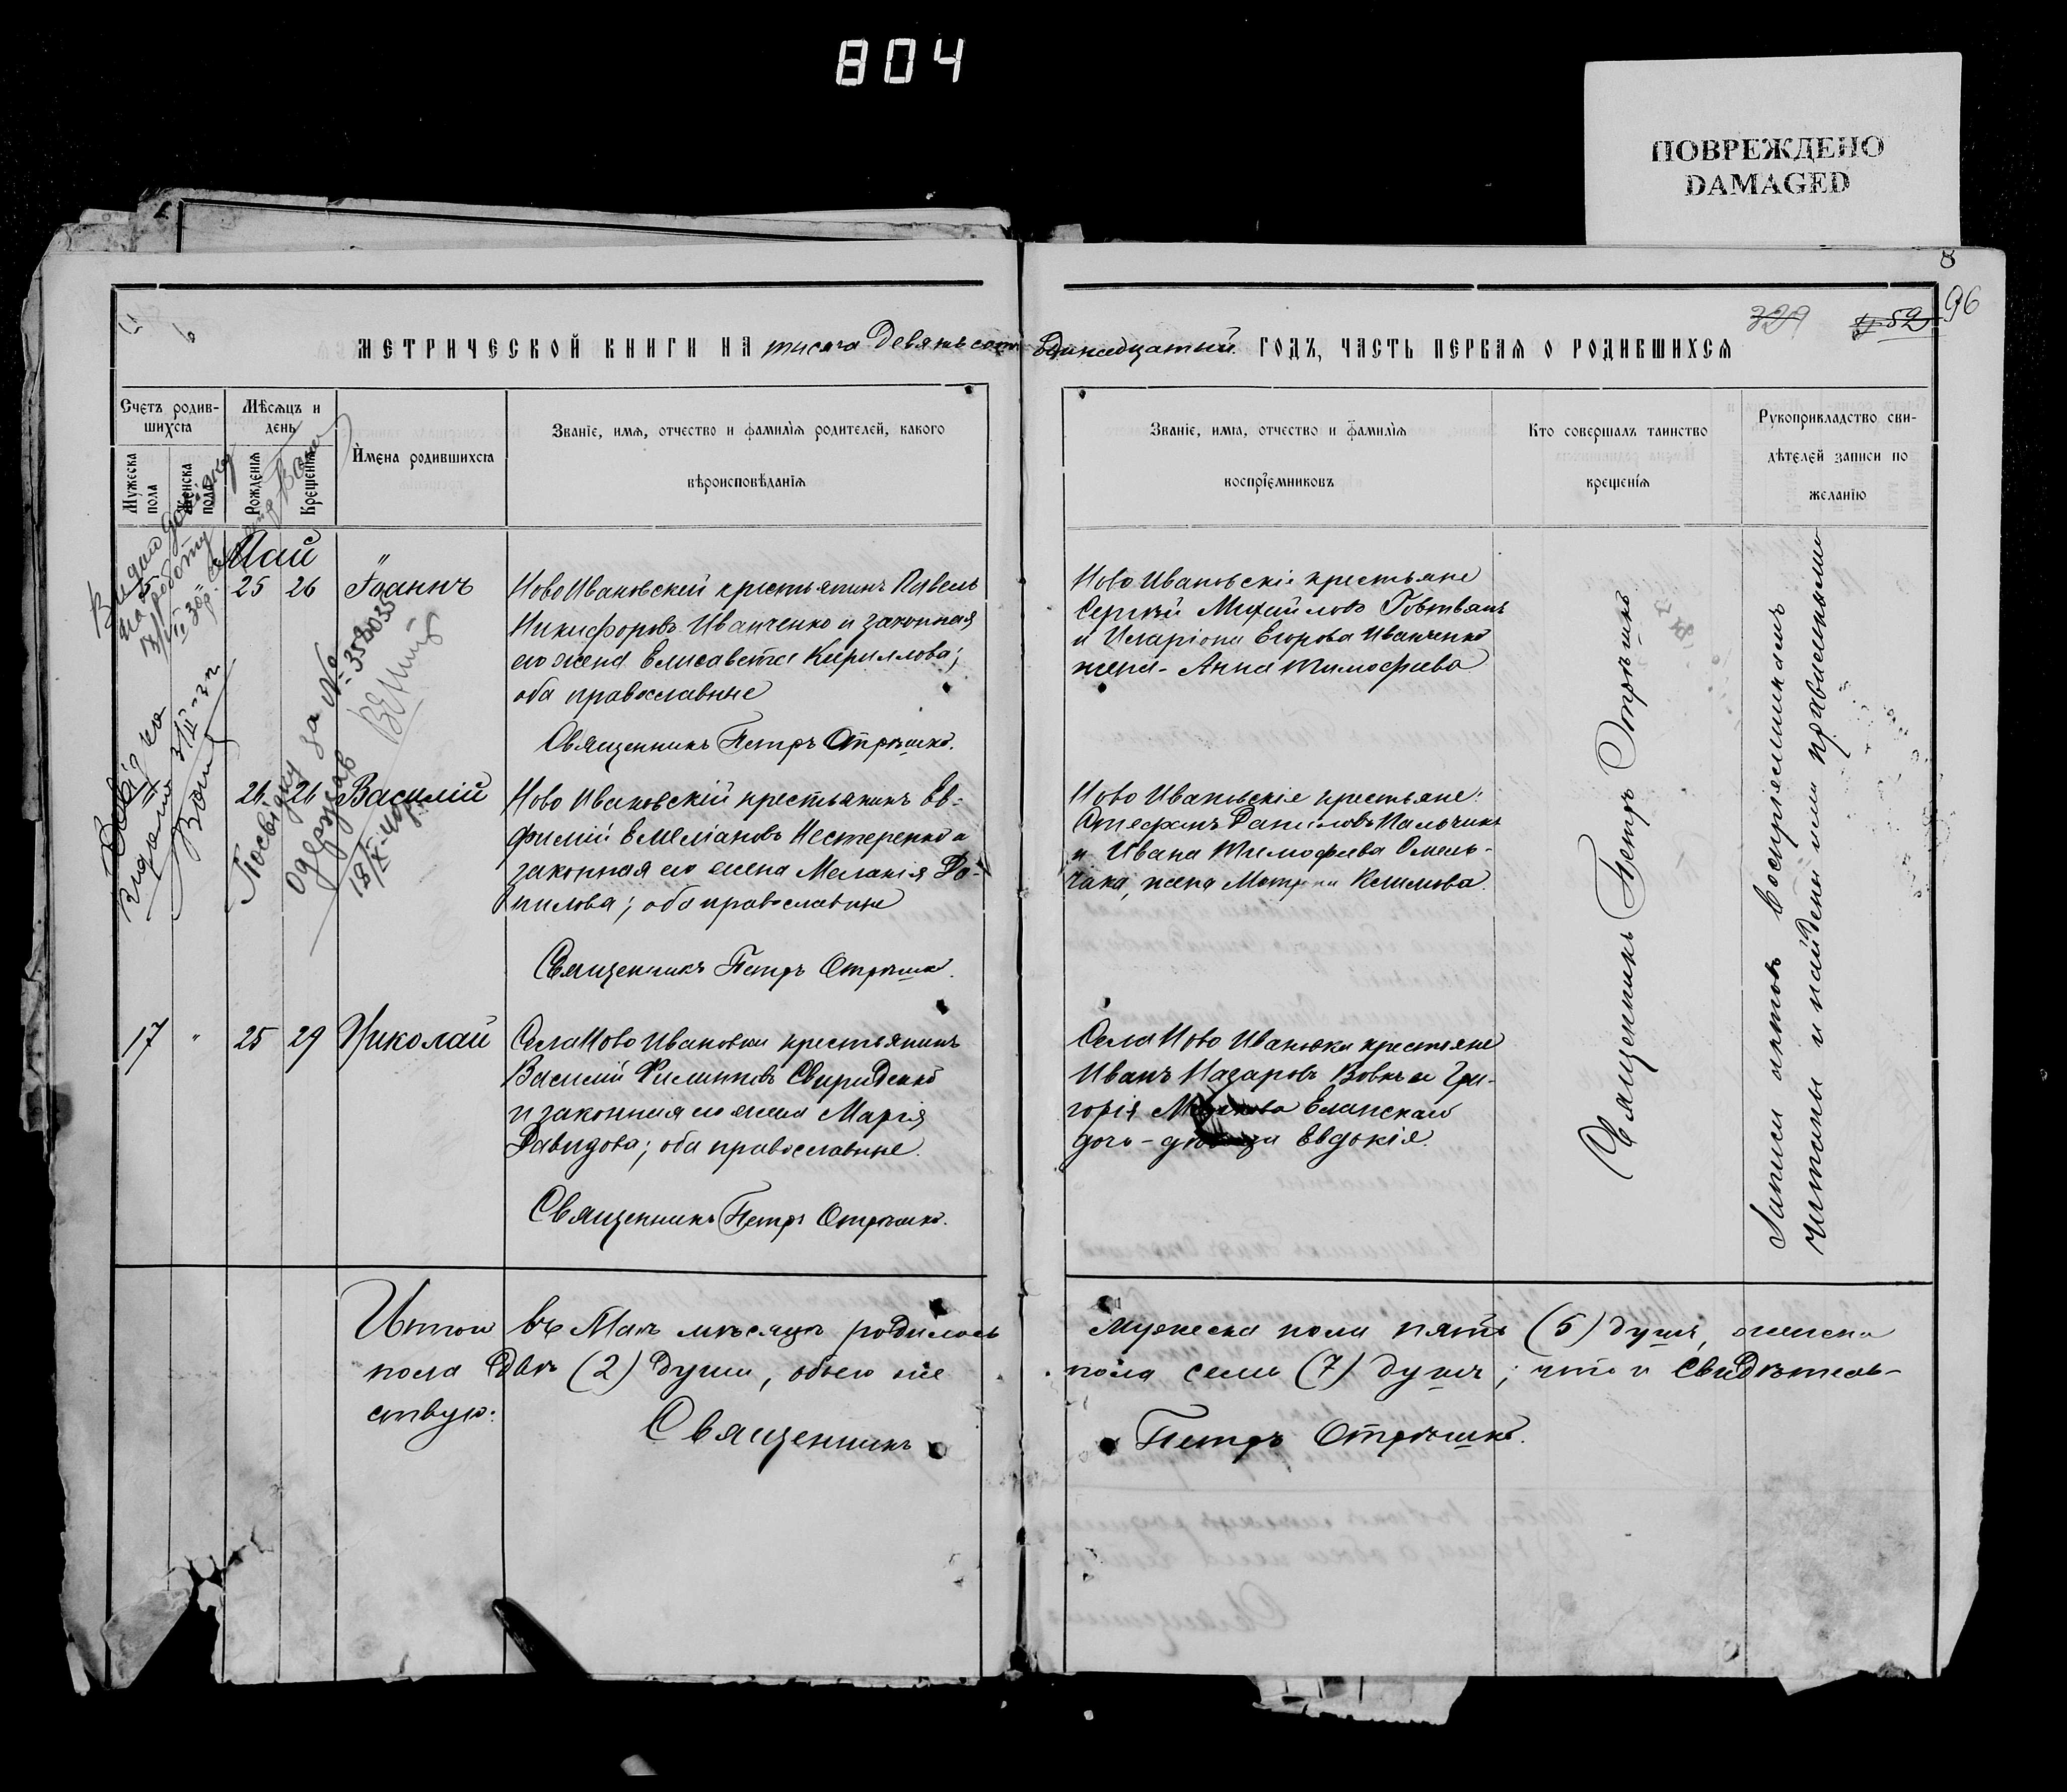 804
ПОВРЕЖДЕНО
DAMAGED
8
96
329
МЕТРИЧЕСКОЙ КНИГИ НА тысяча девятьсот одинадцатый ГОДЪ, ЧАСТЬ ПЕРВАЯ О РОДИВШИХСЯ
Счетъ родив-
шихся
Мужеска пола
Женска пола
Мѣсяцъ и
день
Рожденія
Крещенія
Имена родившихся
Званіе, имя, отчество и фамилія родителей, какого
вѣроисповѣданія
Званіе, имя, отчество и фамилія
воспріемниковъ
Кто совершалъ таинство
крещенія
Рукоприкладство сви-
дѣтелей записи по
желанію
Май
15 " 25 26 Іоаннъ
Ново Ивановскій крестьянинъ Павелъ
Никифоровъ Иванченко и законная
его жена Елисавета Кириллова;
оба православные
Священникъ Петръ Отрѣшко.
Ново Ивановскіе крестьяне
Сергѣй Михайловъ Говтвянъ
и Иларіона Егорова Иванченко
жена - Анна Тимофеева
Посвідку за № 358035
одержав
26 26 Василій
Ново Ивановскій крестьянинъ Ев-
фимій Емеліановъ Нестеренко и
законная его жена Меланія Да-
нилова; оба православные
Священникъ Петръ Отрѣшко.
Ново Ивановскіе крестьяне:
Стефанъ Даниловъ Пальчикъ
и Ивана Тимофеева Омель-
чака, жена Климова
17 " 25 29 Николай
Села Ново Ивановки крестьянинъ
Василій Филиповъ Свириденко
и законная его жена Марія
Давидова; оба православные.
Священникъ Петръ Отрѣшко.
Села Ново Ивановки крестьяне
Иванъ Назаровъ Вовкъ и Гри-
горія Еланскаго
дочь - Евдокія.
Священникъ Петръ Отрѣшко
Записи актовъ воспріемникамъ
читаны и найдены ими правильными
Итого въ Маѣ мѣсяцѣ родилось мужеска пола пять (5) душъ, женска
пола двѣ (2) души, обоего же пола семь (7) душъ; что и свидѣтель-
ствую:
Священникъ Петръ Отрѣшко.